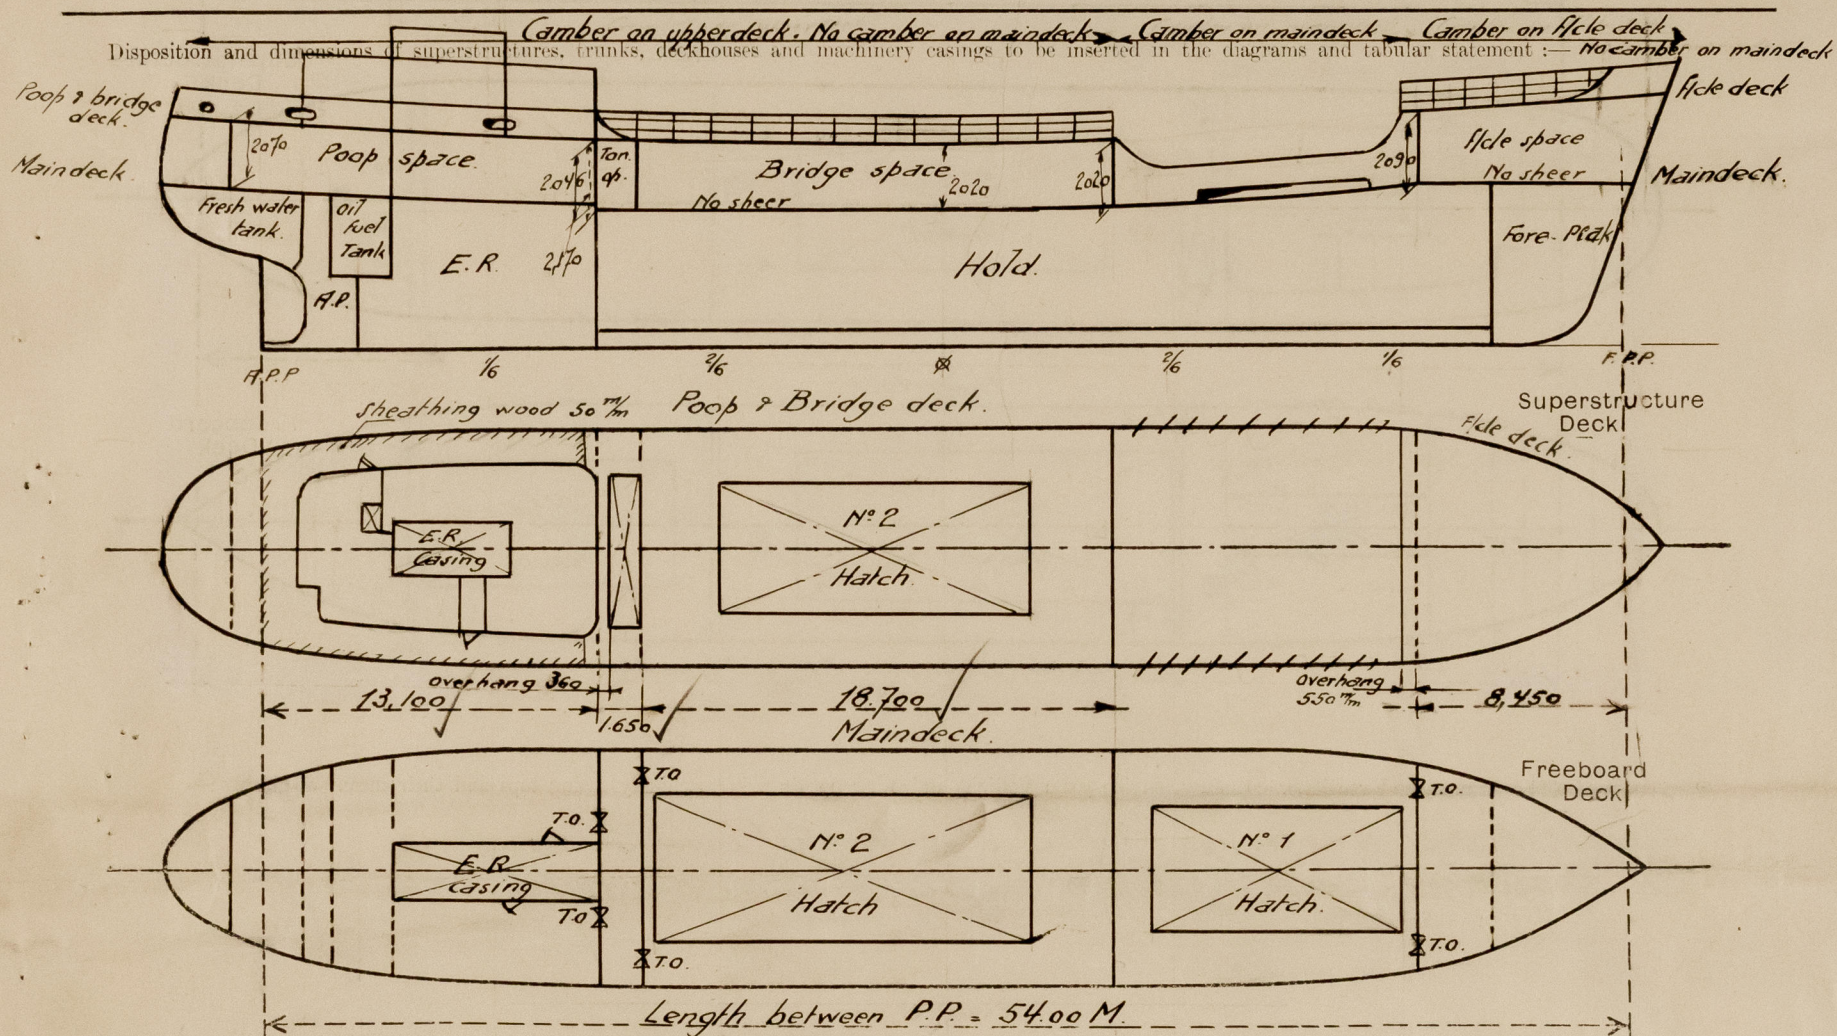 Camber on upperdeck. No camber on maindeck Camber on maindeck Camber on F'cle deck
Disposition and dimensions of superstructures, trunks, deckhouses and machinery casings to be inserted in the diagrams and tabular statement :— No camber on maindeck
Poop & bridge
deck.
F'cle deck
2070
Poop space.
2046
Ton.
op.
Bridge space
2020
2020
2090
F'cle space
No sheer
Maindeck.
Maindeck.
No sheer
Fresh water
tank.
Oil
fuel
Tank
E.R.
2,170
Hold.
Fore-Peak
A.P.
A.P.P
1/6
2/6
2/6
1/6
F.P.P.
Sheathing wood 50 m/m
Poop & Bridge deck.
Superstructure
Deck
F'cle deck.
E.R.
Casing
No 2
Hatch
overhang 360
13,100
1.650
18.700
overhang
550 m/m
8,450
Maindeck.
Freeboard
Deck
T.O
T.O.
T.O.
E.R
Casing
No 2
Hatch
No 1
Hatch.
T.O
T.O.
T.O.
Length between P.P. = 54.00 M.